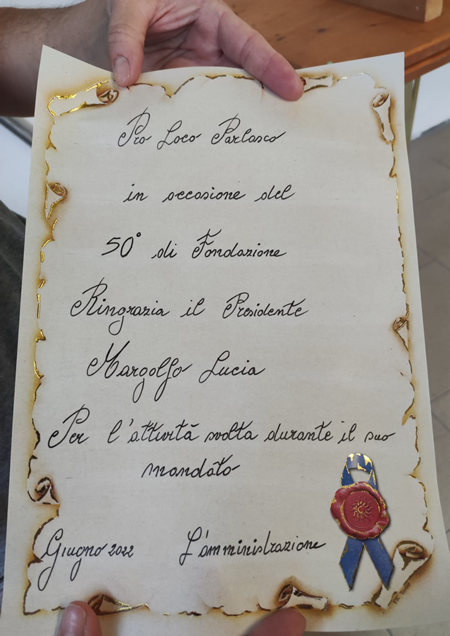 Pro Loco Parlasco
in occasione del
50° di Fondazione
Ringrazia il Presidente
Margolfo Lucia
Per l'attività svolta durante il suo
mandato
Giugno 2022 L'amministrazione